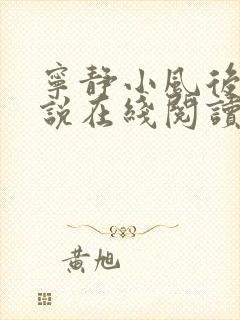 寧靜小風後
說在綫閱讀
黃旭